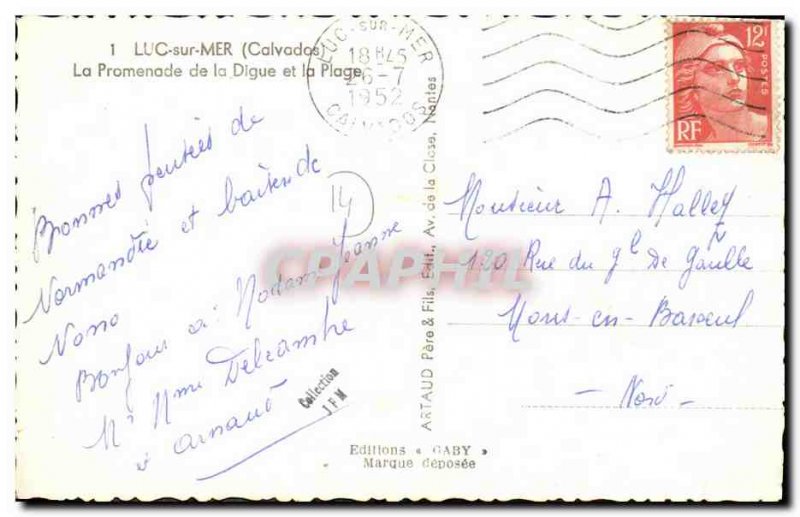 1 LUC-sur-MER (Calvados)
La Promenade de la Digue et la Plage
LUC-SUR-MER
18H45
26-7
1952
CALVADOS
12F
POSTES
RF
Bonnes pensées de
Normandie et baisers de
Nono
Bonjour à Madame Jeanne
Mr Mme Delcambre
et Arnaud
14
Collection
JFM
CPAPHIL
ARTAUD Père & Fils, Edit., Av. de la Close, Nantes
Monsieur A. Halley
120 Rue du Gl De Gaulle
Mons-en-Baroeul
- Nord -
Editions « GABY »
Marque déposée